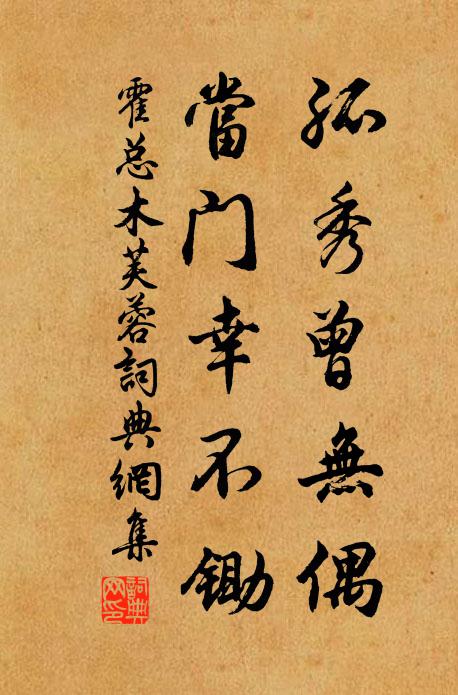 孤秀曾無偶
當门幸不鋤
霍总木芙蓉詞典網集
詞典网印